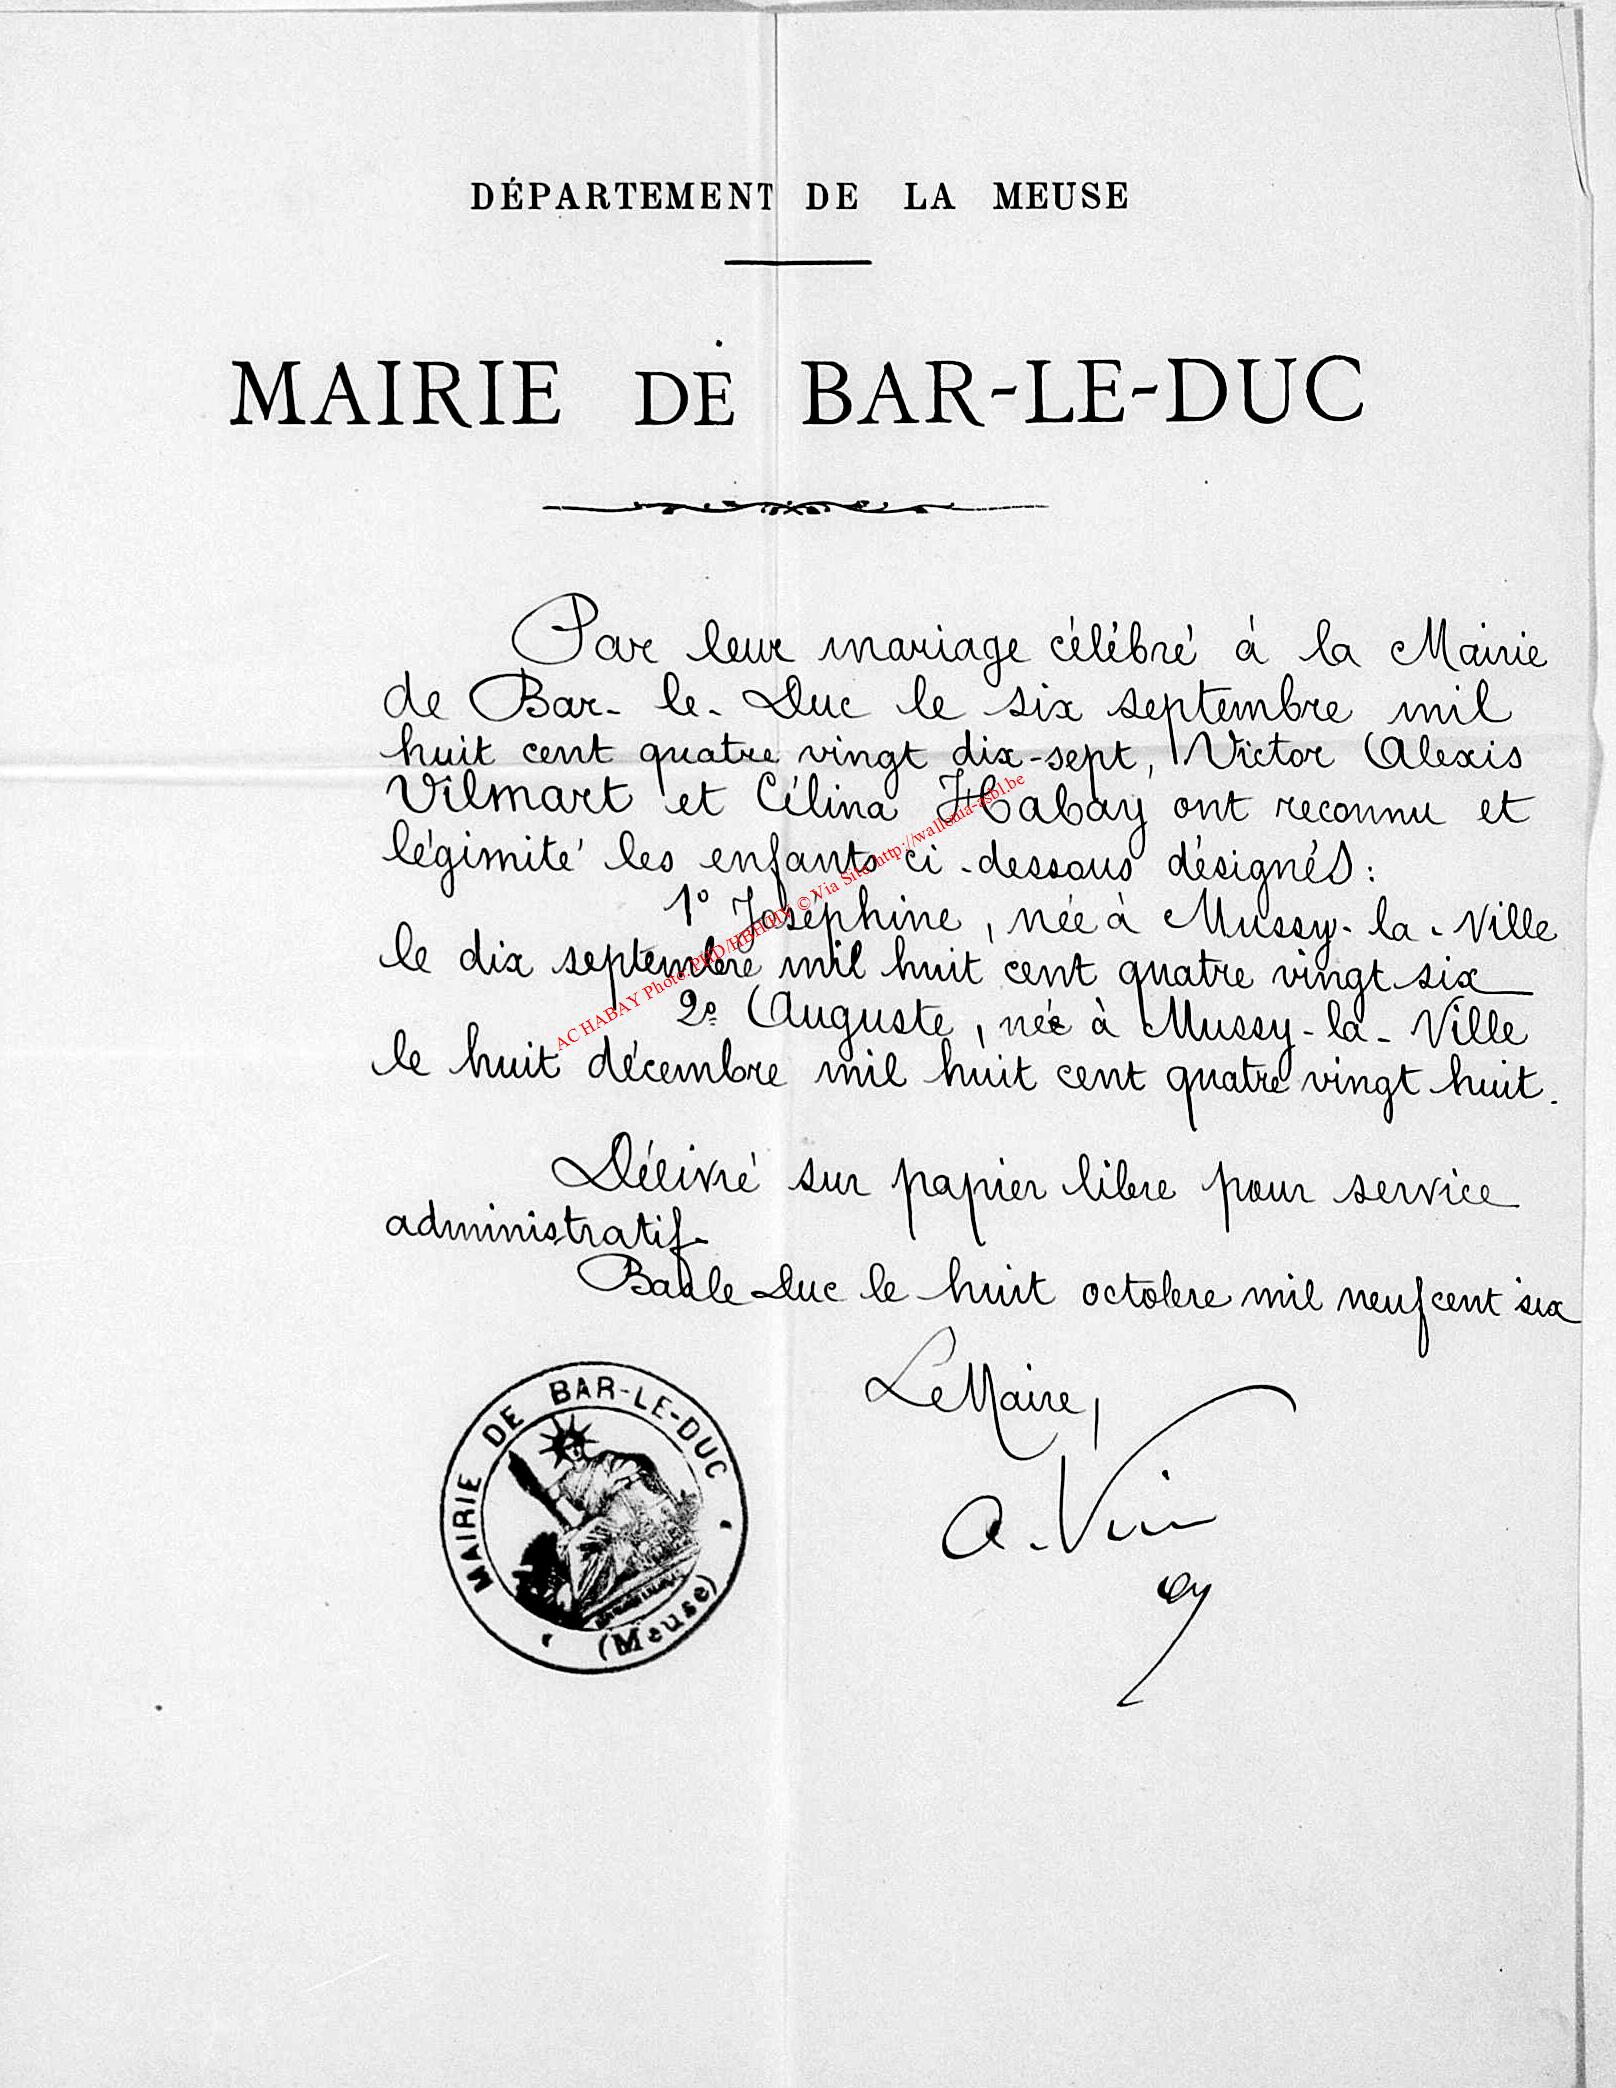 DÉPARTEMENT DE LA MEUSE
MAIRIE DE BAR-LE-DUC
Par leur mariage célébré à la Mairie
de Bar-le-Duc le six septembre mil
huit cent quatre vingt dix-sept, Victor Alexis
Vilmart et Célina Habay ont reconnu et
légimité les enfants ci-dessous désignés:
1° Joséphine, née à Mussy-la-Ville
le dix septembre mil huit cent quatre vingt six
2° Auguste, née à Mussy-la-Ville
le huit décembre mil huit cent quatre vingt huit.
Délivré sur papier libre pour service
administratif.
Bar le Duc le huit octobre mil neuf cent six
Le Maire,
MAIRIE DE BAR-LE-DUC
(Meuse)
AC HABAY Photo: PHD/HBHHY © Via Site http://wallonia-asbl.be